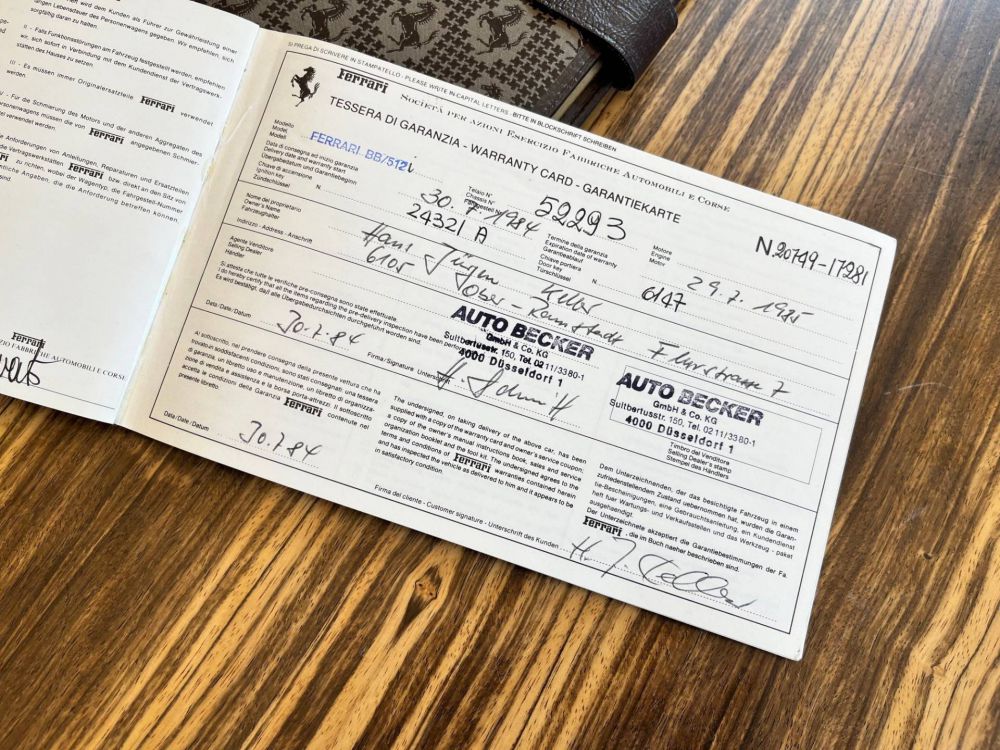 wird dem Kunden als Führer zur Gewährleistung einer
langen Lebensdauer des Personenwagens gegeben. Wir empfehlen,
sorgfältig daran zu halten.
II - Falls Funktionsstörungen am Fahrzeug festgestellt werden, empfehlen
wir, sich sofort in Verbindung mit dem Kundendienst der Vertragswerk-
stätten des Hauses zu setzen.
III - Es müssen immer Originalersatzteile Ferrari verwendet
werden.
Für die Schmierung des Motors und der anderen Aggregaten des
Personenwagens müssen die von Ferrari angegebenen Schmier-
verwendet werden.
Anforderungen von Anleitungen, Reparaturen und Ersatzteilen
die Vertragswerkstätten Ferrari bzw. direkt an den Sitz von
zu richten, wobei der Wagentyp, die Fahrgestell-Nummer
Angaben, die die Anforderung betreffen können,
sind.
Ferrari
FABBRICHE AUTOMOBILI E CORSE
SI PREGA DI SCRIVERE IN STAMPATELLO - PLEASE WRITE IN CAPITAL LETTERS - BITTE IN BLOCKSCHRIFT SCHREIBEN
Ferrari SOCIETÀ PER AZIONI ESERCIZIO FABBRICHE AUTOMOBILI E CORSE
TESSERA DI GARANZIA - WARRANTY CARD - GARANTIEKARTE
Modello
Model
Modell
FERRARI BB/512i
Telaio N°
Chassis N°
Fahrgestell N°
52293
Motore
Engine
Motor
N. 20749-17281
Data di consegna ed inizio garanzia
Delivery date and warranty start
Übergabedatum und Garantiebeginn
30.7.1984
Termine della garanzia
Expiration date of warranty
Garantieablauf
29.7.1985
Chiave di accensione
Ignition key
Zündschlüssel
N. 24321 A
Chiave portiera
Door key
Türschlüssel
N. 6147
Nome del proprietario
Owner's Name
Fahrzeughalter
Hans Jürgen Keller
Indirizzo - Address - Anschrift
6105 Ober-Ramstadt Flurstrasse 7
Agente Venditore
Selling Dealer
Händler
AUTO BECKER
GmbH & Co. KG
Suitbertusstr. 150, Tel. 02 11/33 80-1
4000 Düsseldorf 1
Si attesta che tutte le verifiche pre-consegna sono state effettuate.
I do hereby certify that all the items regarding the pre-delivery inspection have been performed.
Es wird bestätigt, daß alle Übergabedurchsichten durchgeführt worden sind.
Data/Date/Datum 30.7.84
Firma/Signature Unterschrift H. Schmitt
AUTO BECKER
GmbH & Co. KG
Suitbertusstr. 150, Tel. 02 11/33 80-1
4000 Düsseldorf 1
Timbro del Venditore
Selling Dealer's stamp
Stempel des Händlers
Al sottoscritto, nel prendere consegna della presente vettura che ha
trovato in soddisfacenti condizioni, sono stati consegnati: una tessera
di garanzia, un libretto uso e manutenzione, un libretto di organizza-
zione di vendita e assistenza e la borsa porta-attrezzi. Il sottoscritto
accetta le condizioni della Garanzia Ferrari contenute nel
presente libretto.
The undersigned, on taking delivery of the above car, has been
supplied with a copy of the warranty card and owner's service coupon;
a copy of the owner's manual instructions book, sales and service
organization booklet and the tool kit. The undersigned agrees to the
terms and conditions of Ferrari warranties contained herein
and has inspected the vehicle as delivered to him and it appears to be
in satisfactory condition.
Dem Unterzeichnenden, der das besichtigte Fahrzeug in einem
zufriedenstellendem Zustand uebernommen hat, wurden die Garan-
tie-Bescheinigungen, eine Gebrauchtsanleitung, ein Kundendienst
heft fuer Wartungs- und Verkaufsstellen und das Werkzeug - paket
ausgehaendigt.
Der Unterzeichnete akzeptiert die Garantiebestimmungen der Fa.
Ferrari, die im Buch naeher beschrieben sind.
Data/Date/Datum 30.7.84
Firma del cliente - Customer signature - Unterschrift des Kunden H. J. Keller